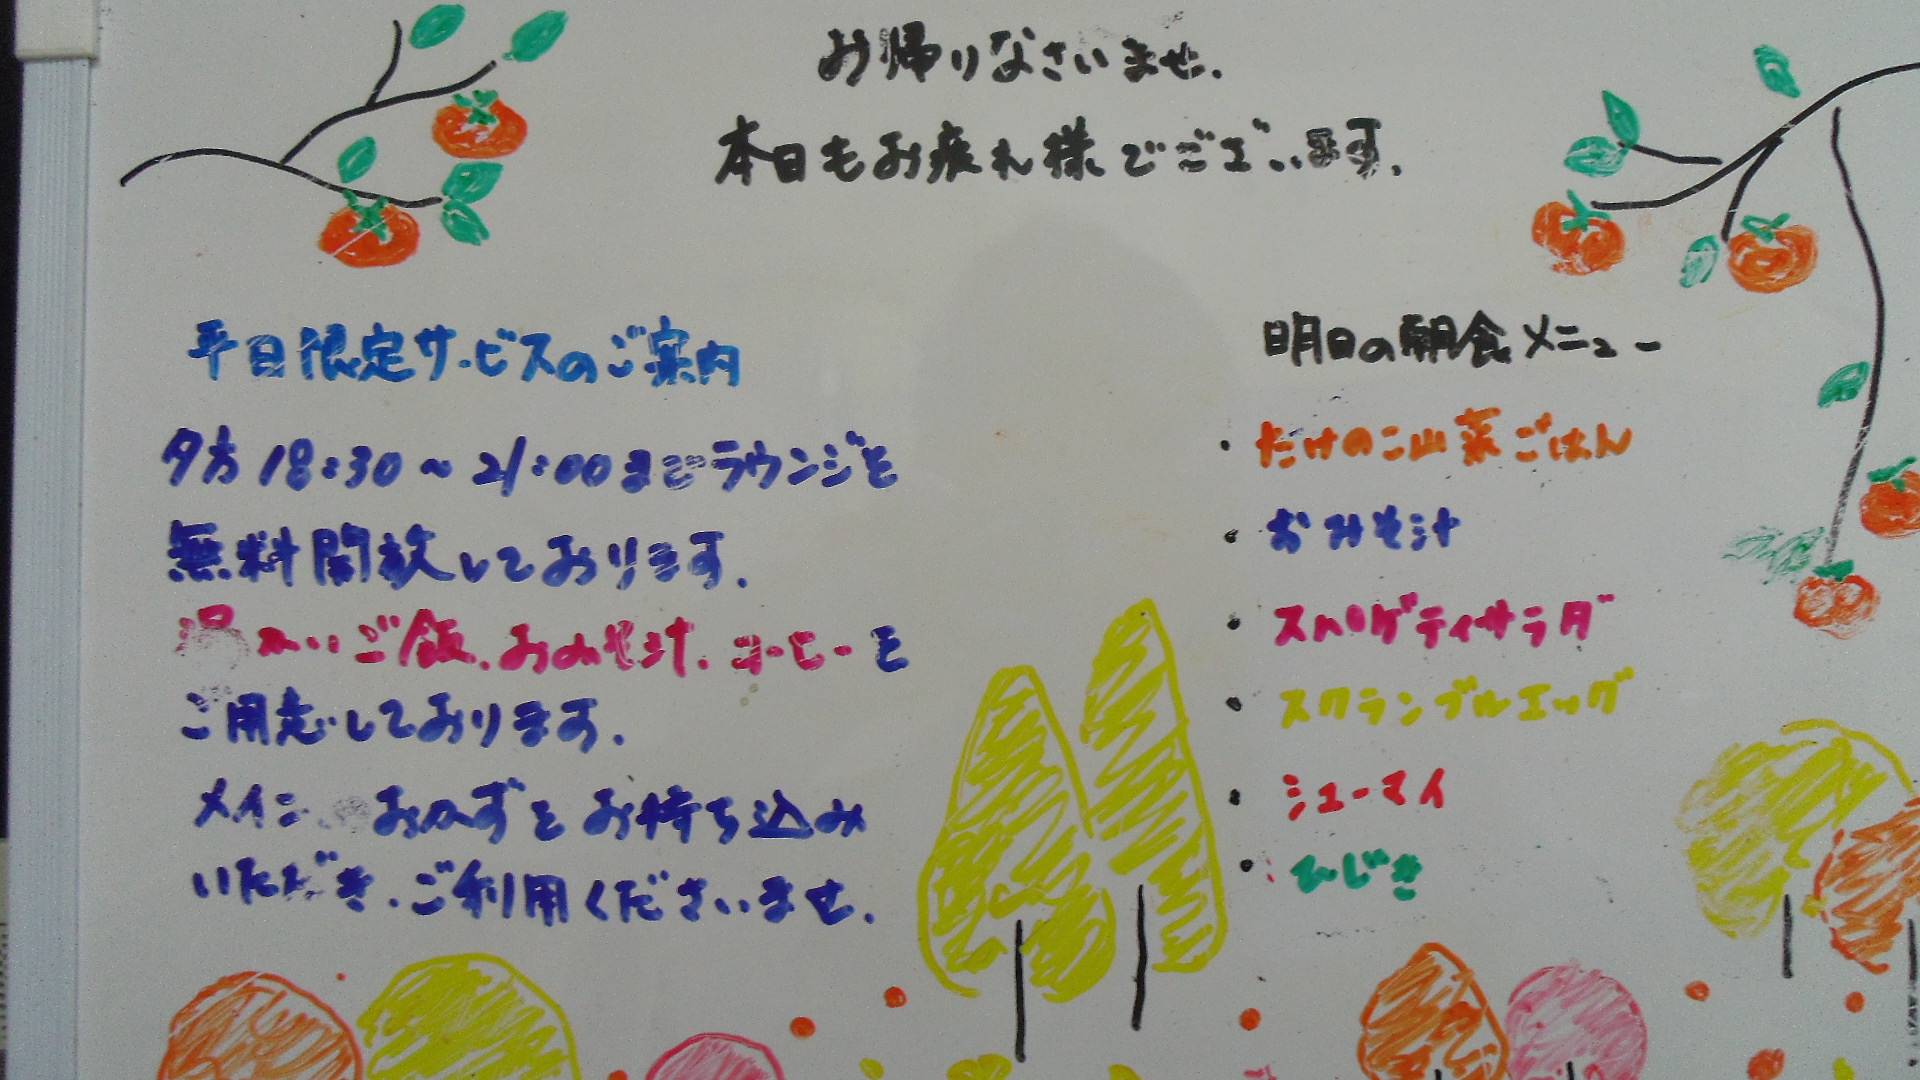 お帰りなさいませ.
本日もお疲れ様でございます.
平日限定サービスのご案内
夕方18:30～21:00までラウンジを
無料開放しております.
温かいご飯、おみそ汁、コーヒーを
ご用意しております.
メイン、おかずをお持ち込み
いただき、ご利用くださいませ.
明日の朝食メニュー
・たけのこ山菜ごはん
・おみそ汁
・スパゲティサラダ
・スクランブルエッグ
・シューマイ
・ひじき